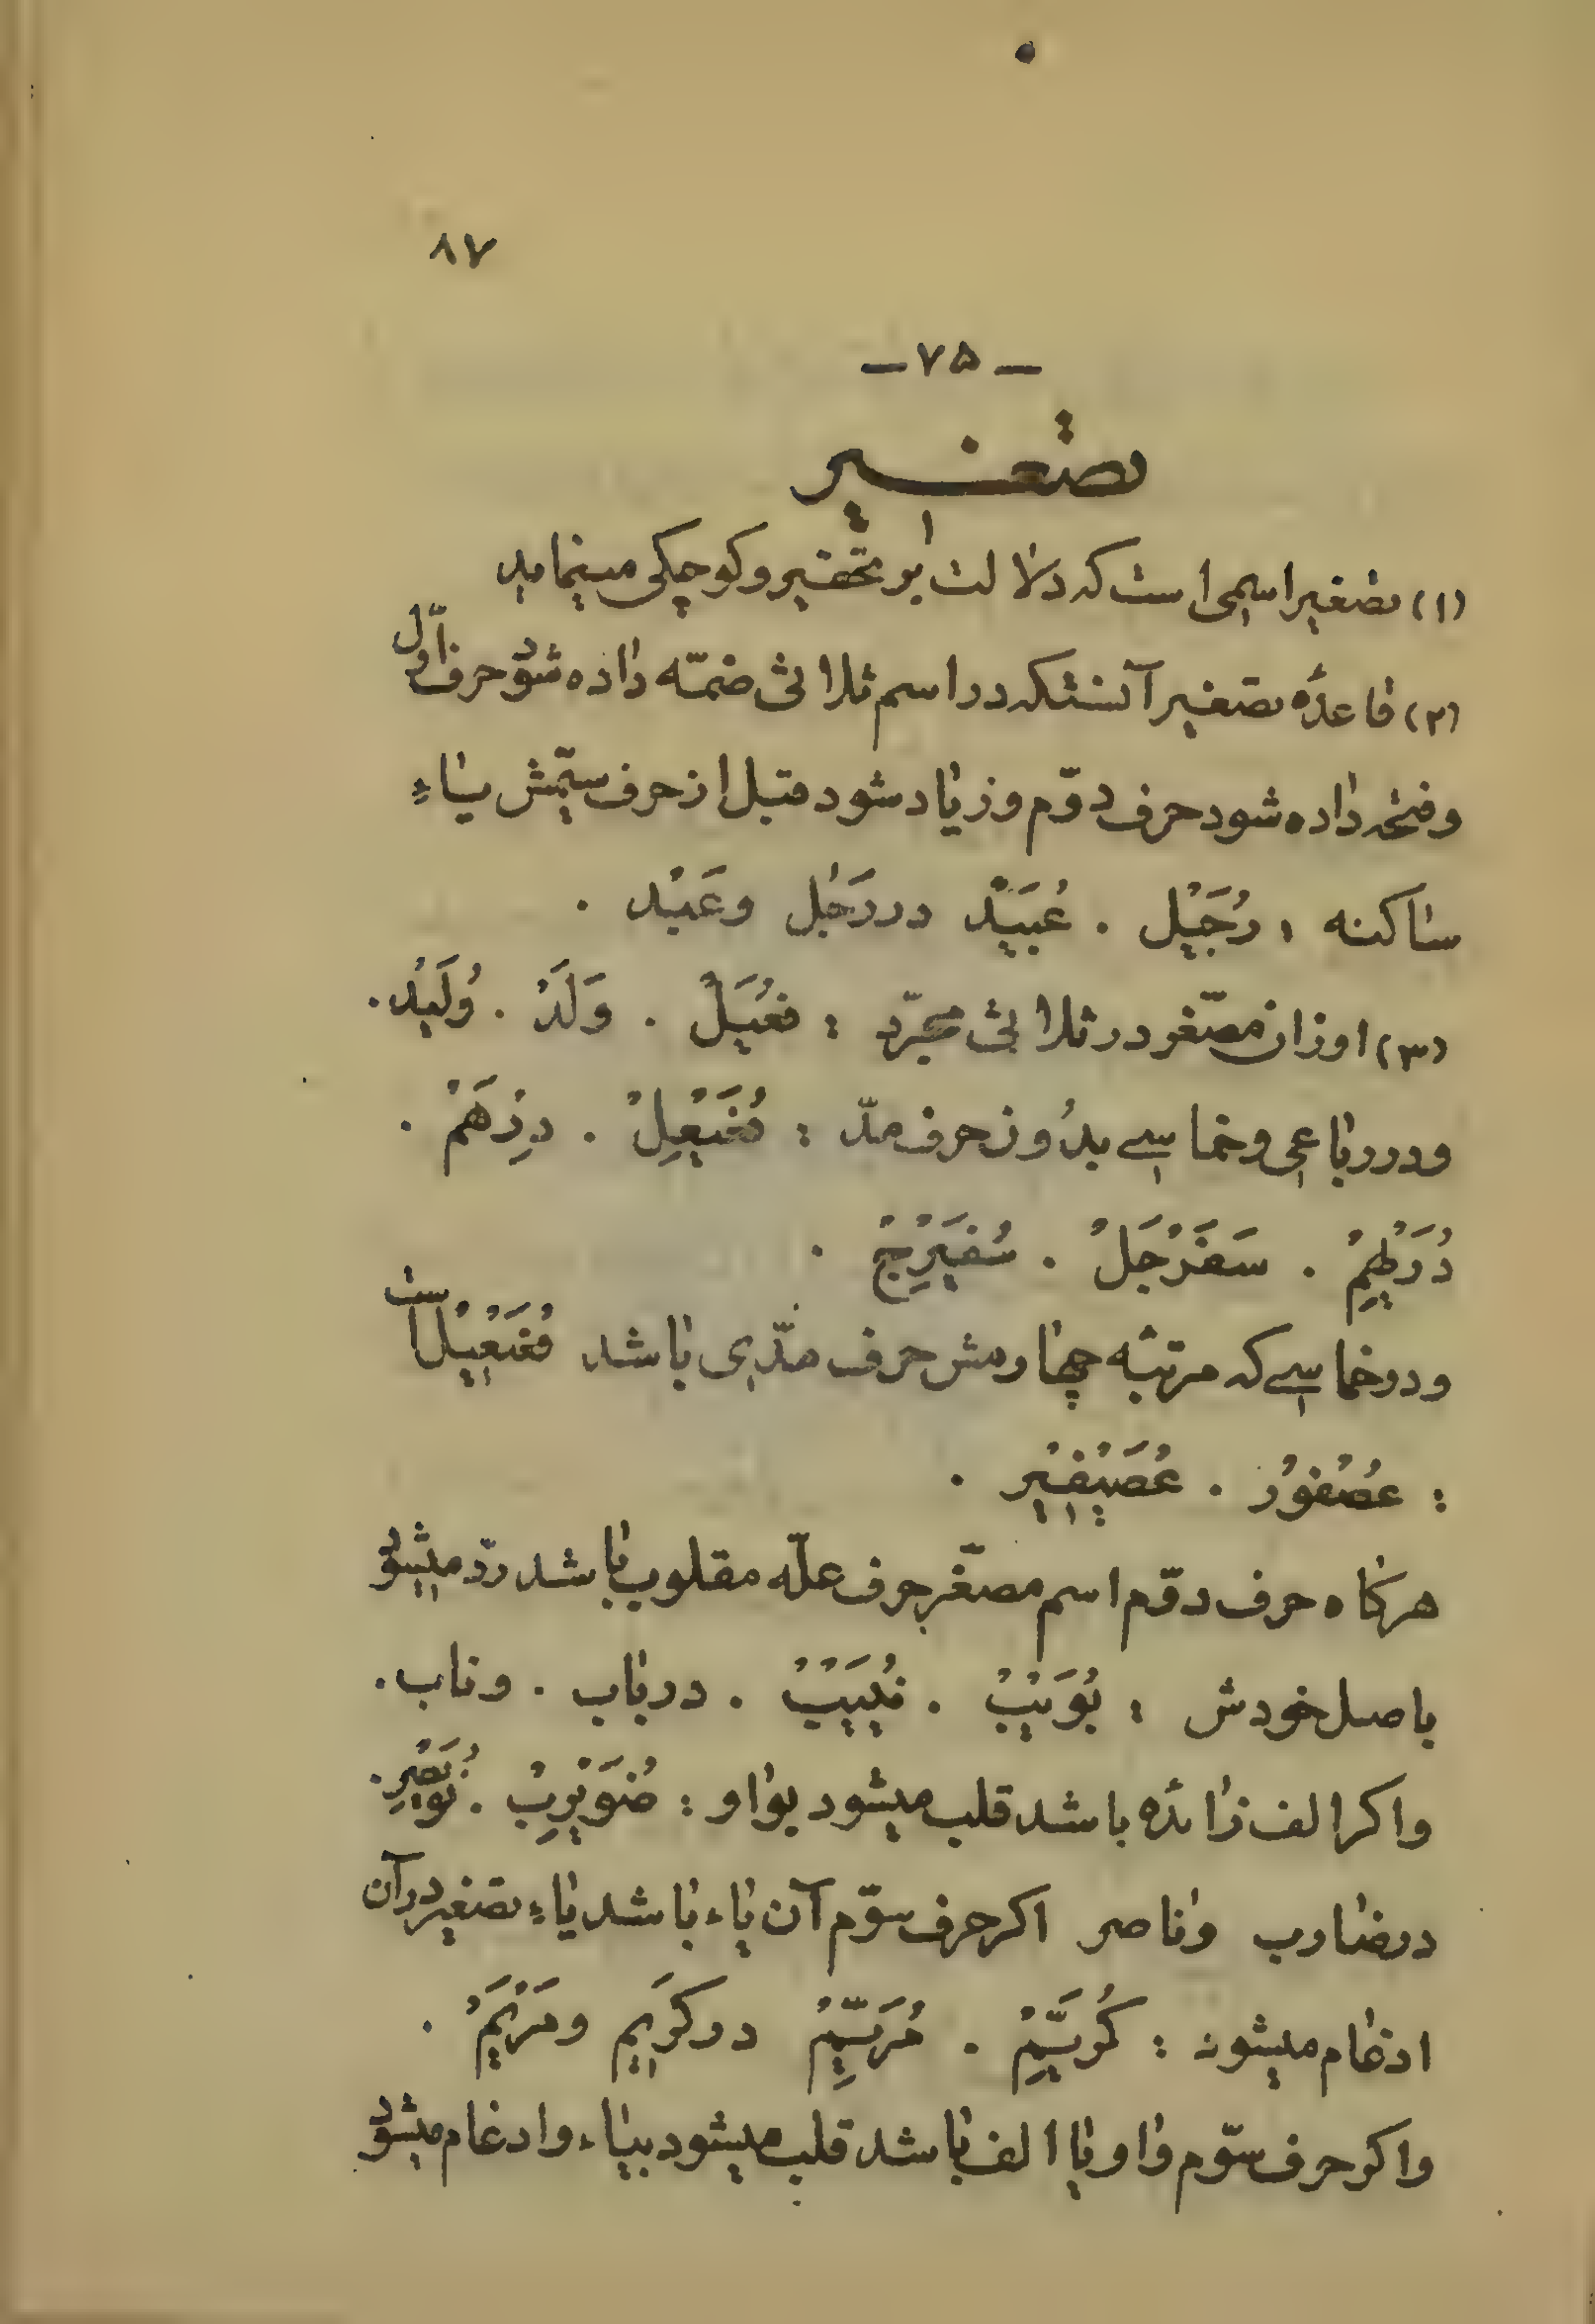 ۸۷
— ۷۵ —
تصغیر
(۱) تصغیر اسمی است که دلالت بر تحقیر و کوچکی مینماید
(۲) قاعدهٔ تصغیر آنستکه در اسم ثلاثی ضمّه داده شود حرف اوّل
و فتحه داده شود حرف دوّم و زیاد شود قبل از حرف سیّمش یاءِ
ساکنه : رُجَیْل . عُبَیْدْ در رَجُل وعَبْد .
(۳) اوزان مصّغر در ثلاثی مجرّد : فُعَیْلْ . وَلَدْ . وُلَیْد .
و در رباعی و خماسی بدُون حرف مدّ : فُعَیْعِلْ . دِرْهَمْ .
دُرَیْهِمْ . سَفَرْجَلْ . سُفَیْرِجْ .
و در خماسی که مرتبهٔ چهارمش حرف مدّی باشد فُعَیْعِیْل است
: عُصْفوُرْ . عُصَیْفِیْر .
هرگاه حرف دوّم اسم مصغّر حرف علّه مقلوب باشد ردّ میشود
باصل خودش : بُوَیْبْ . نُیَیْبْ . در باب . و ناب .
و اگر الف زائده باشد قلب میشود بواو : ضُوَیْرِبْ . نُوَیْصِر .
در ضارب و ناصر اگر حرف سوّم آن یاء باشد یاءِ تصغیر در آن
ادغام میشود : کُرَیِّمْ . مُرَیِّمْ در کَرِیم و مَرْیَمْ .
و اگر حرف سوّم واو یا الف باشد قلب میشود بیاء و ادغام میشود